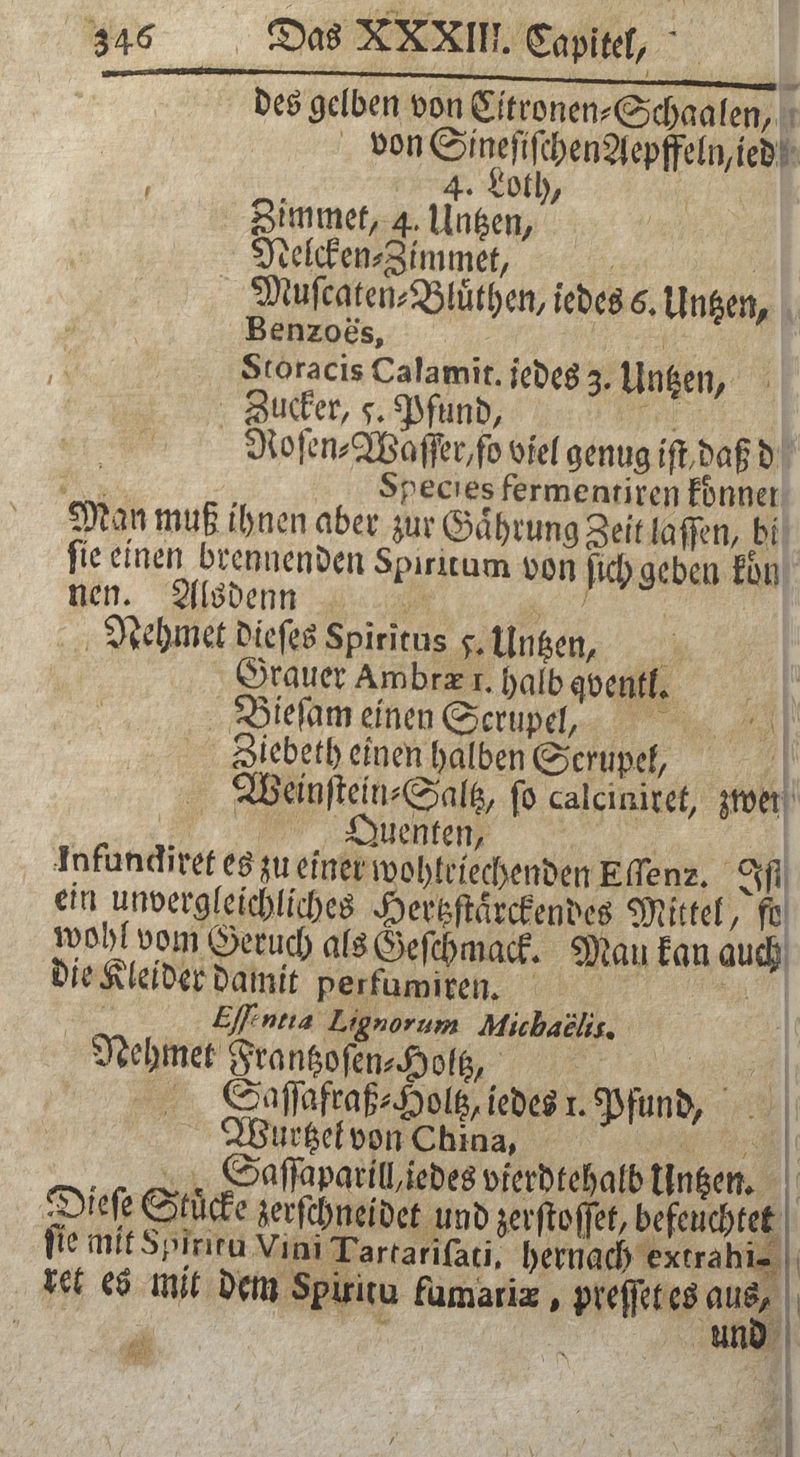 346 Das XXXIII. Capitel,
des gelben von Citronen-Schaalen,
von Sinesischen Aepffeln, ied
4. Loth,
Zimmet, 4. Untzen,
Nelcken-Zimmet,
Muscaten-Blüthen, iedes 6. Untzen,
Benzoës,
Storacis Calamit. jedes 3. Untzen,
Zucker, 5. Pfund,
Rosen-Wasser, so viel genug ist, daß d
Species fermentiren können
Man muß ihnen aber zur Gährung Zeit lassen, bi
sie einen brennenden Spiritum von sich geben kön
nen. Alsdenn
Nehmet dieses Spiritus 5. Untzen,
Grauer Ambræ 1. halb qventl.
Biesam einen Scrupel,
Ziebeth einen halben Scrupel,
Weinstein-Saltz, so calciniret, zwey
Quenten,
Infundiret es zu einer wohlriechenden Essenz. Ist
ein unvergleichliches Hertzstärckendes Mittel, so
wohl vom Geruch als Geschmack. Man kan auch
die Kleider damit perfumiren.
Essentia Lignorum Michaëlis.
Nehmet Frantzosen-Holtz,
Sassafraß-Holtz, iedes 1. Pfund,
Wurtzel von China,
Sassaparill, iedes vierdtehalb Untzen.
Diese Stücke zerschneidet und zerstosset, befeuchtet
sie mit Spiritu Vini Tartarisati, hernach extrahi-
ret es mit dem Spiritu fumariæ, presset es aus,
und